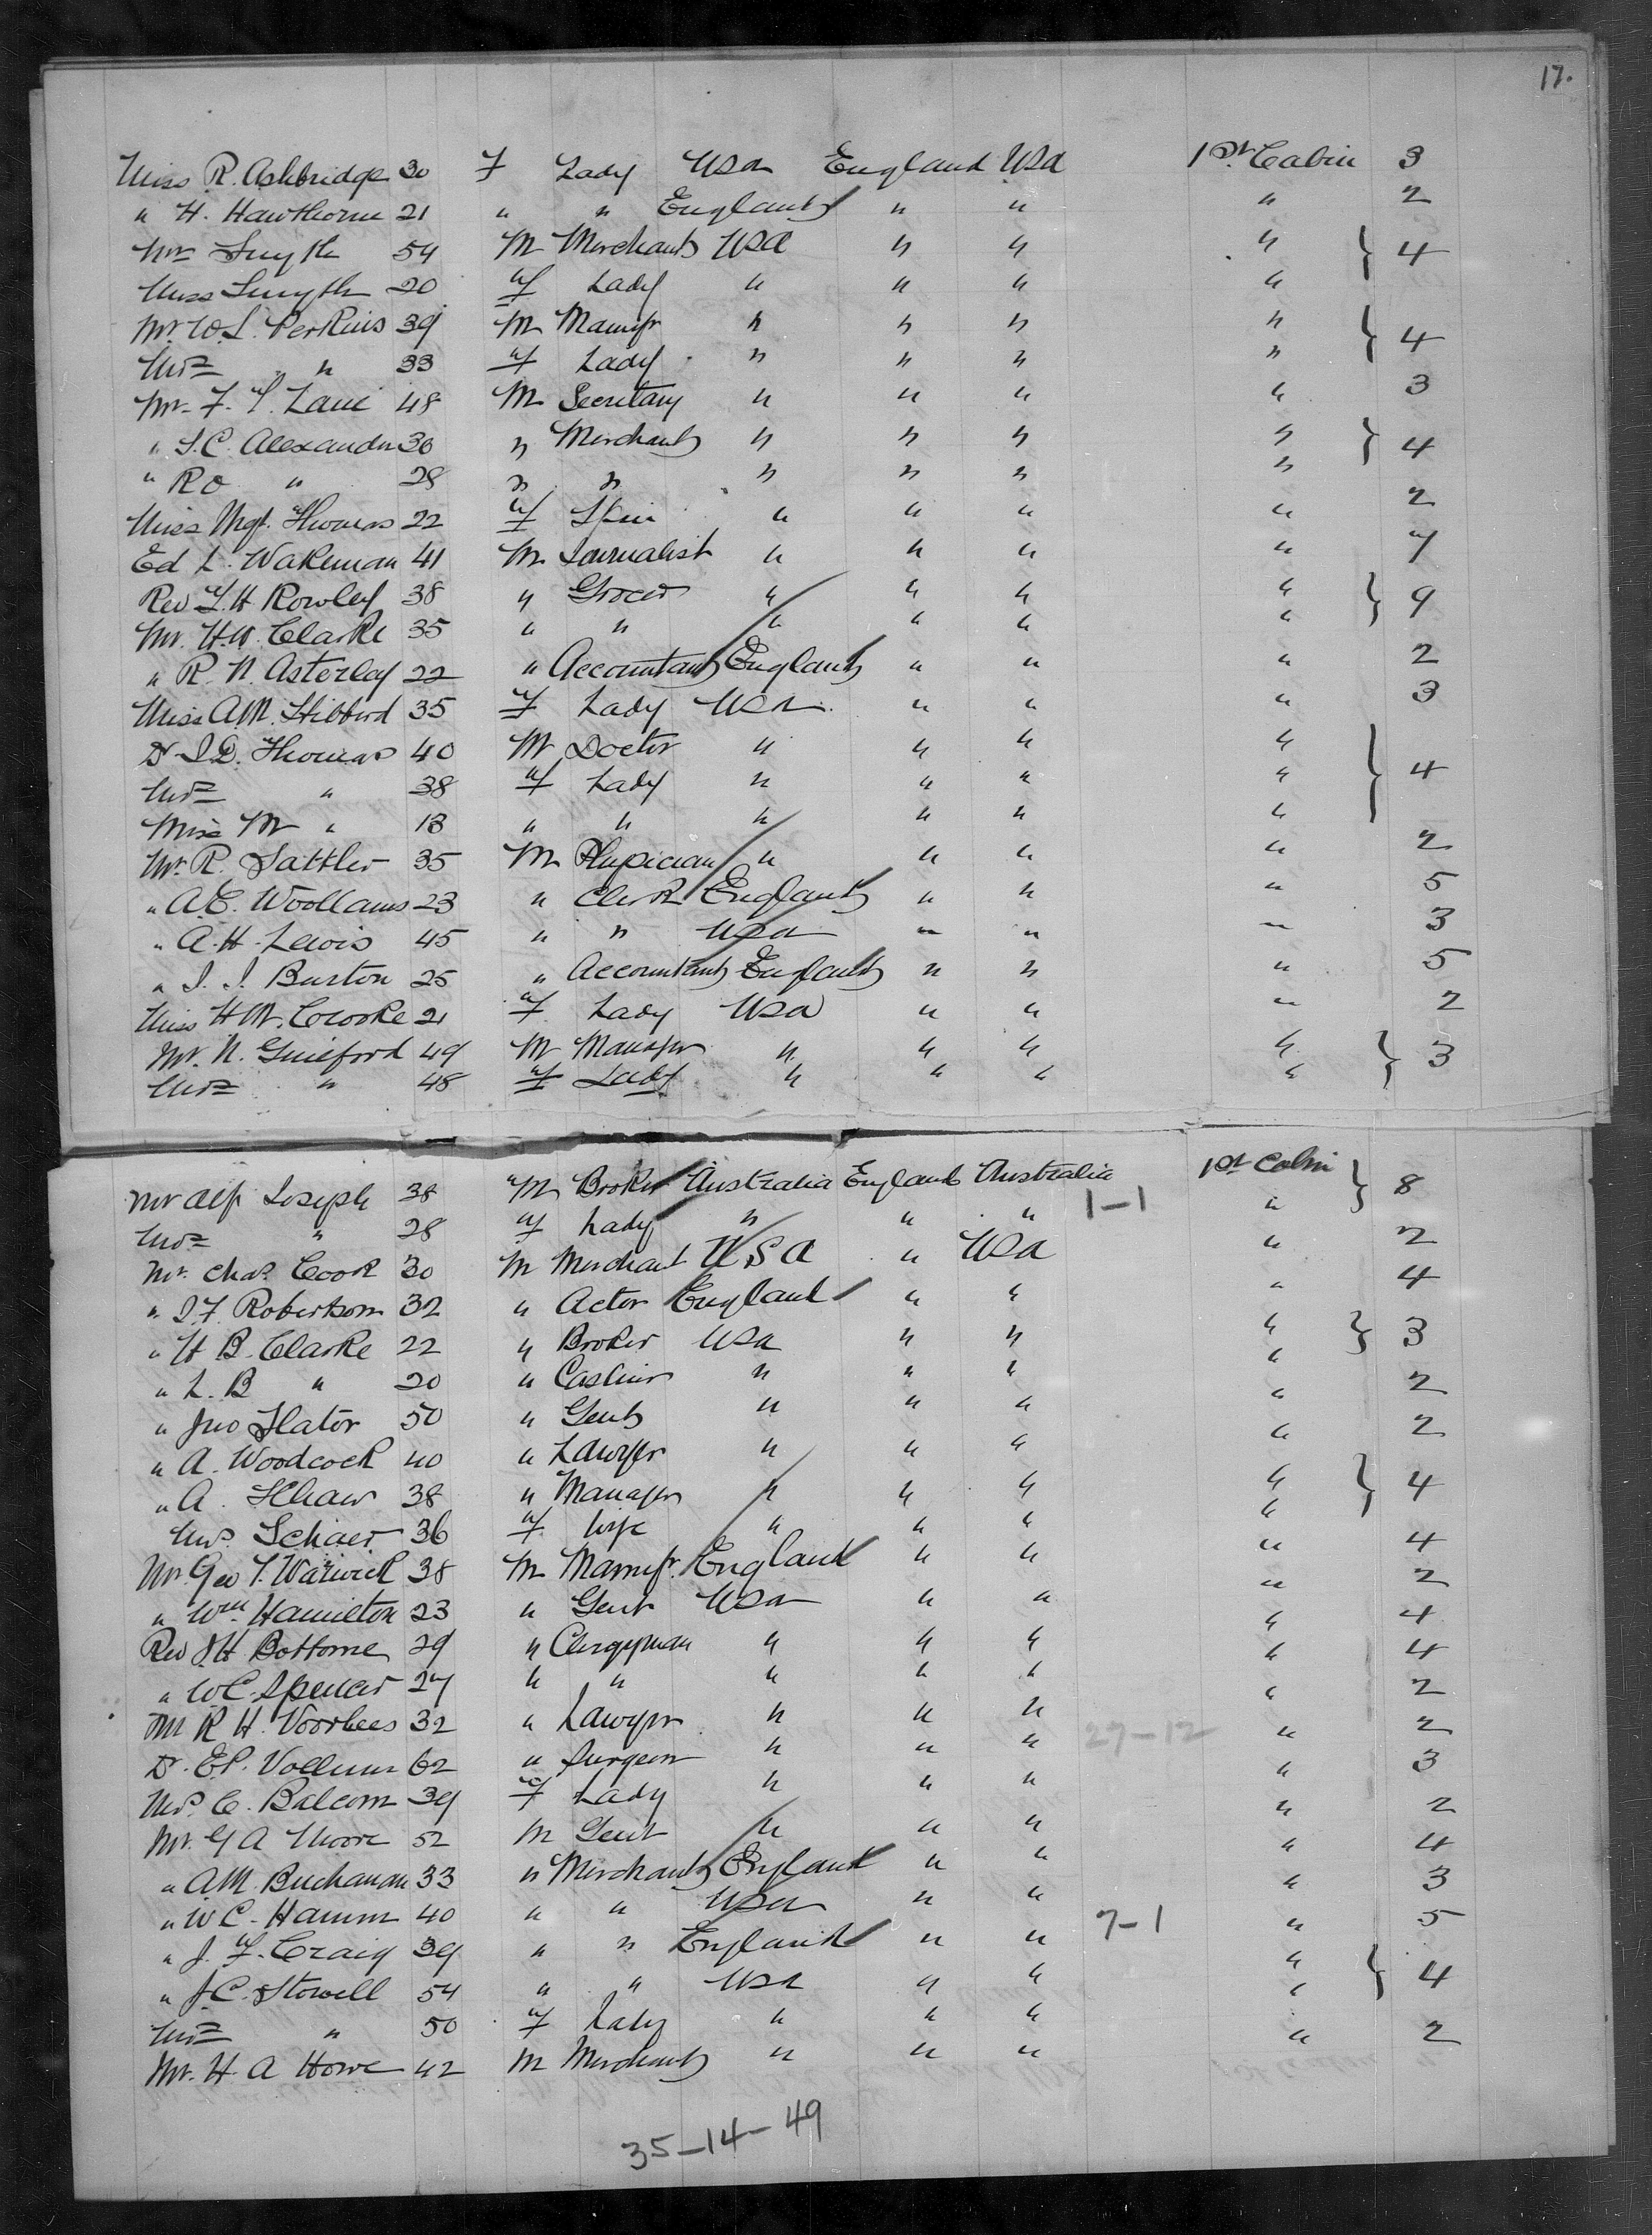 17.
Miss R. Ashbridge 30 F Lady USA England USA 1st Cabin 3
" H. Hawthorne 21 " " England " " " 2
Mr Smyth 54 M Merchant USA " " " } 4
Miss Smyth 20 F Lady " " " "
Mr. W.S. Perkins 39 M Manufr " " " " } 4
Mrs " 33 F Lady " " " "
Mr. F. S. Lane 48 M Secretary " " " " 3
" S.C. Alexander 30 " Merchant " " " " } 4
" R O " 28 " " " " " "
Miss Mgt. Thomas 22 F Spin " " " " 2
Ed L. Wakeman 41 M Journalist " " " " 7
Rev L.H Rowley 38 " Grocer " " " " } 9
Mr. H.W. Clarke 35 " " " " " "
" R. N. Asterley 22 " Accountant England " " " 2
Miss A M. Hibberd 35 F Lady USA " " " 3
Dr I.D. Thomas 40 M Doctor " " " " } 4
Mrs " 38 F Lady " " " "
Miss M " 18 " " " " " "
Mr. R. Sattler 35 M Physician " " " " 2
" A.E. Woollams 23 " Clerk England " " " 5
" A. H. Lewis 45 " " USA " " " 3
" J. J. Burton 25 " Accountant England " " " 5
Miss H M. Crooke 21 F Lady USA " " " 2
Mr. N. Guilford 49 M Manager " " " " } 3
Mrs " 48 F Lady " " " "
Mr Alf Joseph 38 M Broker Australia England Australia 1st Cabin } 8
Mrs " 28 F Lady " " " 1-1 "
Mr. Chas. Cook 30 M Merchant USA " USA " 2
" J.F. Robertson 32 " Actor England " " " 4
" H B. Clarke 22 " Broker USA " " " } 3
" L. B " 20 " Cashier " " " "
" Jno Slator 50 " Gent " " " " 2
" A. Woodcock 40 " Lawyer " " " " 2
" A. Schaw 38 " Manager " " " " } 4
Mrs. Schaer 36 F Wife " " " "
Mr. Geo T. Warwick 38 M Manufr. England " " " 4
" Wm Hamilton 23 " Gent USA " " " 2
Rev J H Bottome 29 " Clergyman " " " " 4
" W C. Spencer 27 " " " " " " 4
Mr R H. Voorhees 32 " Lawyer " " " " 2
Dr. E.P. Vollum 62 " Surgeon " " " 27-12 " 2
Mrs. C. Balcom 39 F Lady " " " " 3
Mr. G A Moore 52 M Gent " " " " 2
" A M. Buchanan 33 " Merchant England " " " 4
" W C. Hamm 40 " " USA " " " 3
" J. F. Craig 39 " " England " " 7-1 " 5
" J.C. Stowell 54 " " USA " " " } 4
Mrs " 50 F Lady " " " "
Mr. H. A Howe 42 M Merchant " " " " 2
35-14-49